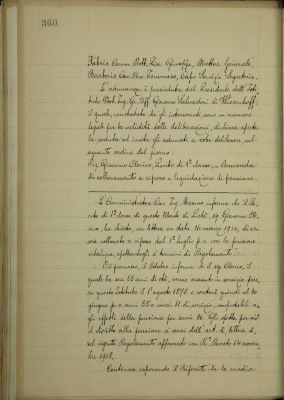 360
Fabris Comm. Dott. Cav. Giuseppe, Direttore Generale,
Barberis Cav. Avv. Tommaso, Capo Servizio Segreteria.
L'adunanza è presieduta dal Presidente dell'Isti-
tuto Nob. Ing. Gr. Uff. Giacomo Salvadori di Wiesenhoff,
il quale, constatato che gli intervenuti sono in numero
legale per la validità delle deliberazioni, dichiara aperta
la seduta ed invita gli adunati a voler deliberare sul
seguente ordine del giorno:
Sig. Giacomo Clerico, Perito di 1ª classe, - domanda
di collocamento a riposo e liquidazione di pensione.
L'Amministratore Cav. Ing. Masino informa che il Pe-
rito di 1ª classe di questo Monte di Pietà, sig. Giacomo Cle-
rico, ha chiesto, con lettera in data 10 marzo 1914, di es-
sere collocato a riposo dal 1° luglio p.v. con la pensione
vitalizia spettandogli a termini di Regolamento.
Ciò premesso, il Relatore informa che il sig. Clerico, il
quale ha ora 65 anni di età, venne assunto in servizio presso
questo Istituto il 1° agosto 1878 e conterà quindi al 30
giugno p.v. anni 35 e mesi 11 di servizio, computabili a-
gli effetti della pensione per anni 36. Gli spetta perciò
il diritto alla pensione a sensi dell'art. 2, lettera a,
del vigente Regolamento approvato con R. Decreto 14 novem-
bre 1913.
Continua esponendo il Riferente che la media